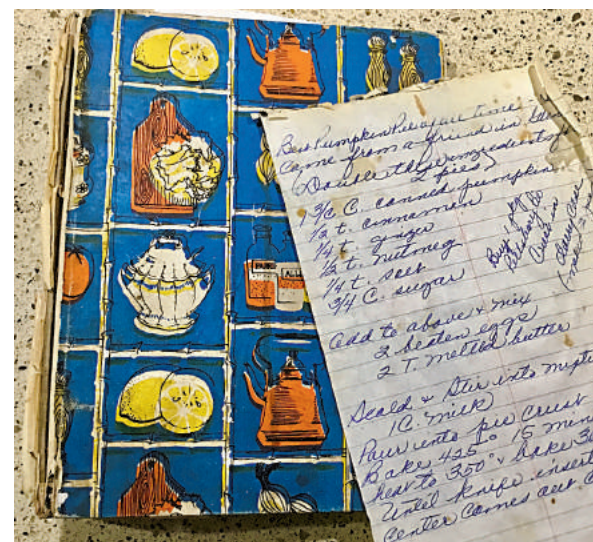 Best Pumpkin Pie of all time -
came from a friend in
Double the ingredients for
2 pies
1 3/4 C. canned pumpkin
1/2 t. cinnamon
1/4 t. ginger
1/2 t. nutmeg
1/4 t. salt
3/4 C. sugar
Buy
Pillsbury
Crust in
add to above & mix
2 beaten eggs
2 T. melted butter
Scald & Stir into
1 C. milk
Pour into pie crust
Bake 425° 15 min
heat to 350° & bake
Until knife insert
center comes out